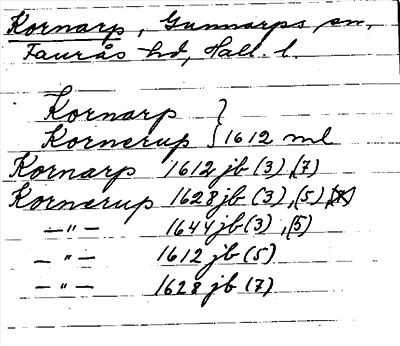 Kornarp, Gunnarps sn,
Faurås hd, Hall. l.
Kornarp
Kornerup } 1612 ml
Kornarp 1612 jb (3), (7)
Kornerup 1628 jb (3), (5)
—"— 1644 jb (3), (5)
—"— 1612 jb (5)
—"— 1628 jb (7)